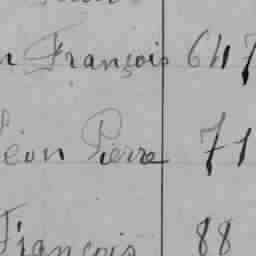 François 647
Léon Pierre 71
François 88